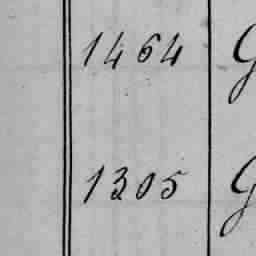 1464 G
1305 G